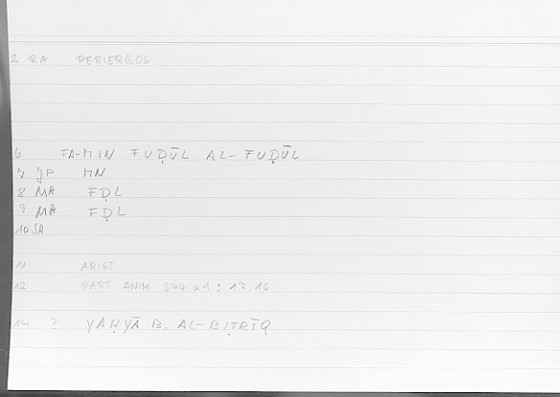 2 RA PERIERGOS
6 FA-MIN FUḌŪL AL-FUḌŪL
7 JP MN
8 MA FḌL
9 MA FḌL
10 SA
11 ARIST
12 PART ANIM 644 a1 : 17.16
14 ? YAḤYĀ B. AL-BIṬRĪQ